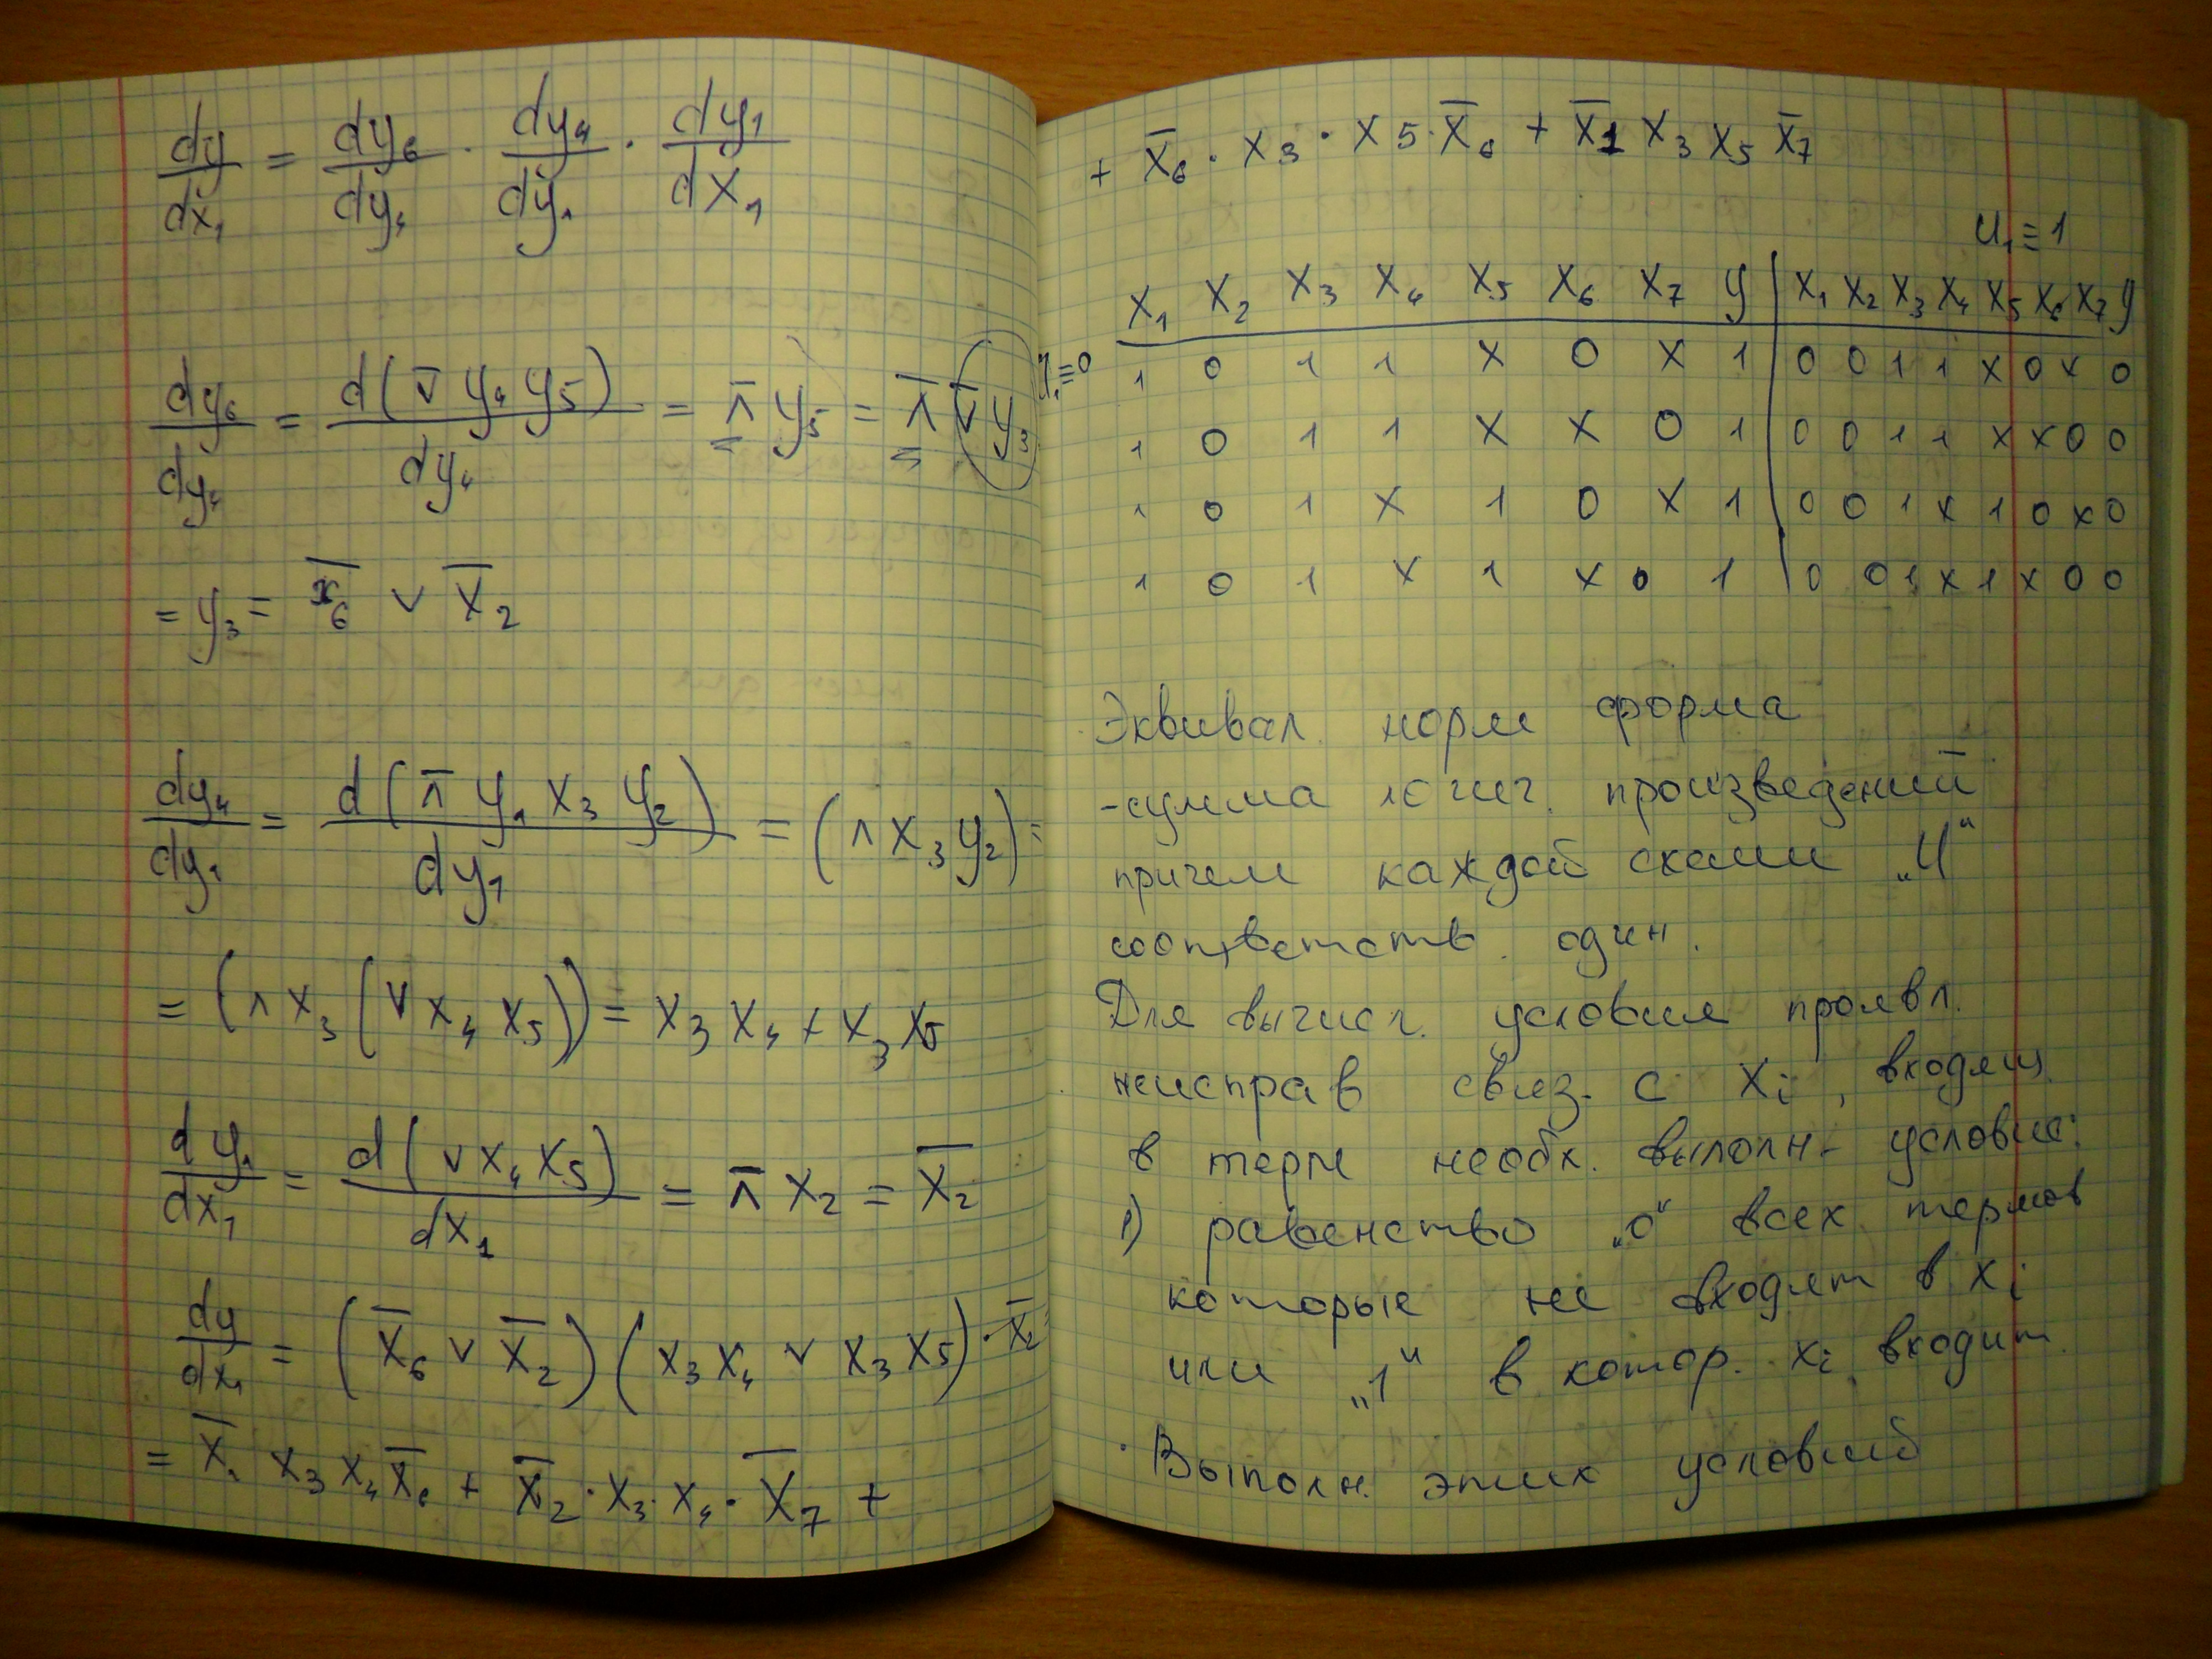 dy/dx₁ = dy₆/dy₄ · dy₄/dy₁ · dy₁/dx₁
dy₆/dy₄ = d(⊽ y₄ y₅)/dy₄ = ⊼ y₅ = ⊼ ⊽ y₃
= y₃ = x̅₆ ∨ X̅₂
dy₄/dy₁ = d(⊼ y₁ x₃ y₂)/dy₁ = (∧ x₃ y₂) =
= (∧ x₃ (∨ x₄ x₅)) = x₃ x₄ + x₃ x₅
dy₁/dx₁ = d(∨ x₄ x₅)/dx₁ = ⊼ x₂ = X̅₂
dy/dx₁ = (X̅₆ ∨ X̅₂)(x₃ x₄ ∨ x₃ x₅) · X̅₂
= X̅₁ x₃ x₄ X̅₆ + X̅₂ · x₃ · x₄ · X̅₇ +
+ X̅₆ · x₃ · x5 · X̅₆ + X̅₁ x₃ x₅ X̅₇
U₁≡1
x₁ x₂ x₃ x₄ x₅ x₆ x₇ y | x₁ x₂ x₃ x₄ x₅ x₆ x₇ y
≡0 1 0 1 1 x 0 x 1 | 0 0 1 1 x 0 x 0
1 0 1 1 x x 0 1 | 0 0 1 1 x x 0 0
1 0 1 x 1 0 x 1 | 0 0 1 x 1 0 x 0
1 0 1 x 1 x 0 1 | 0 0 1 x 1 x 0 0
Эквивал. норм форма
-сумма логич. произведений
причем каждой схеми „И“
соответств. один.
Для вычисл. условия проявл.
неисправ связ. с Xi, входящ
в терм необх. выполн- условие:
1) равенство „0“ всех термов
которые не входят в xi
или „1“ в котор. xi входит.
· Выполн. этих условий